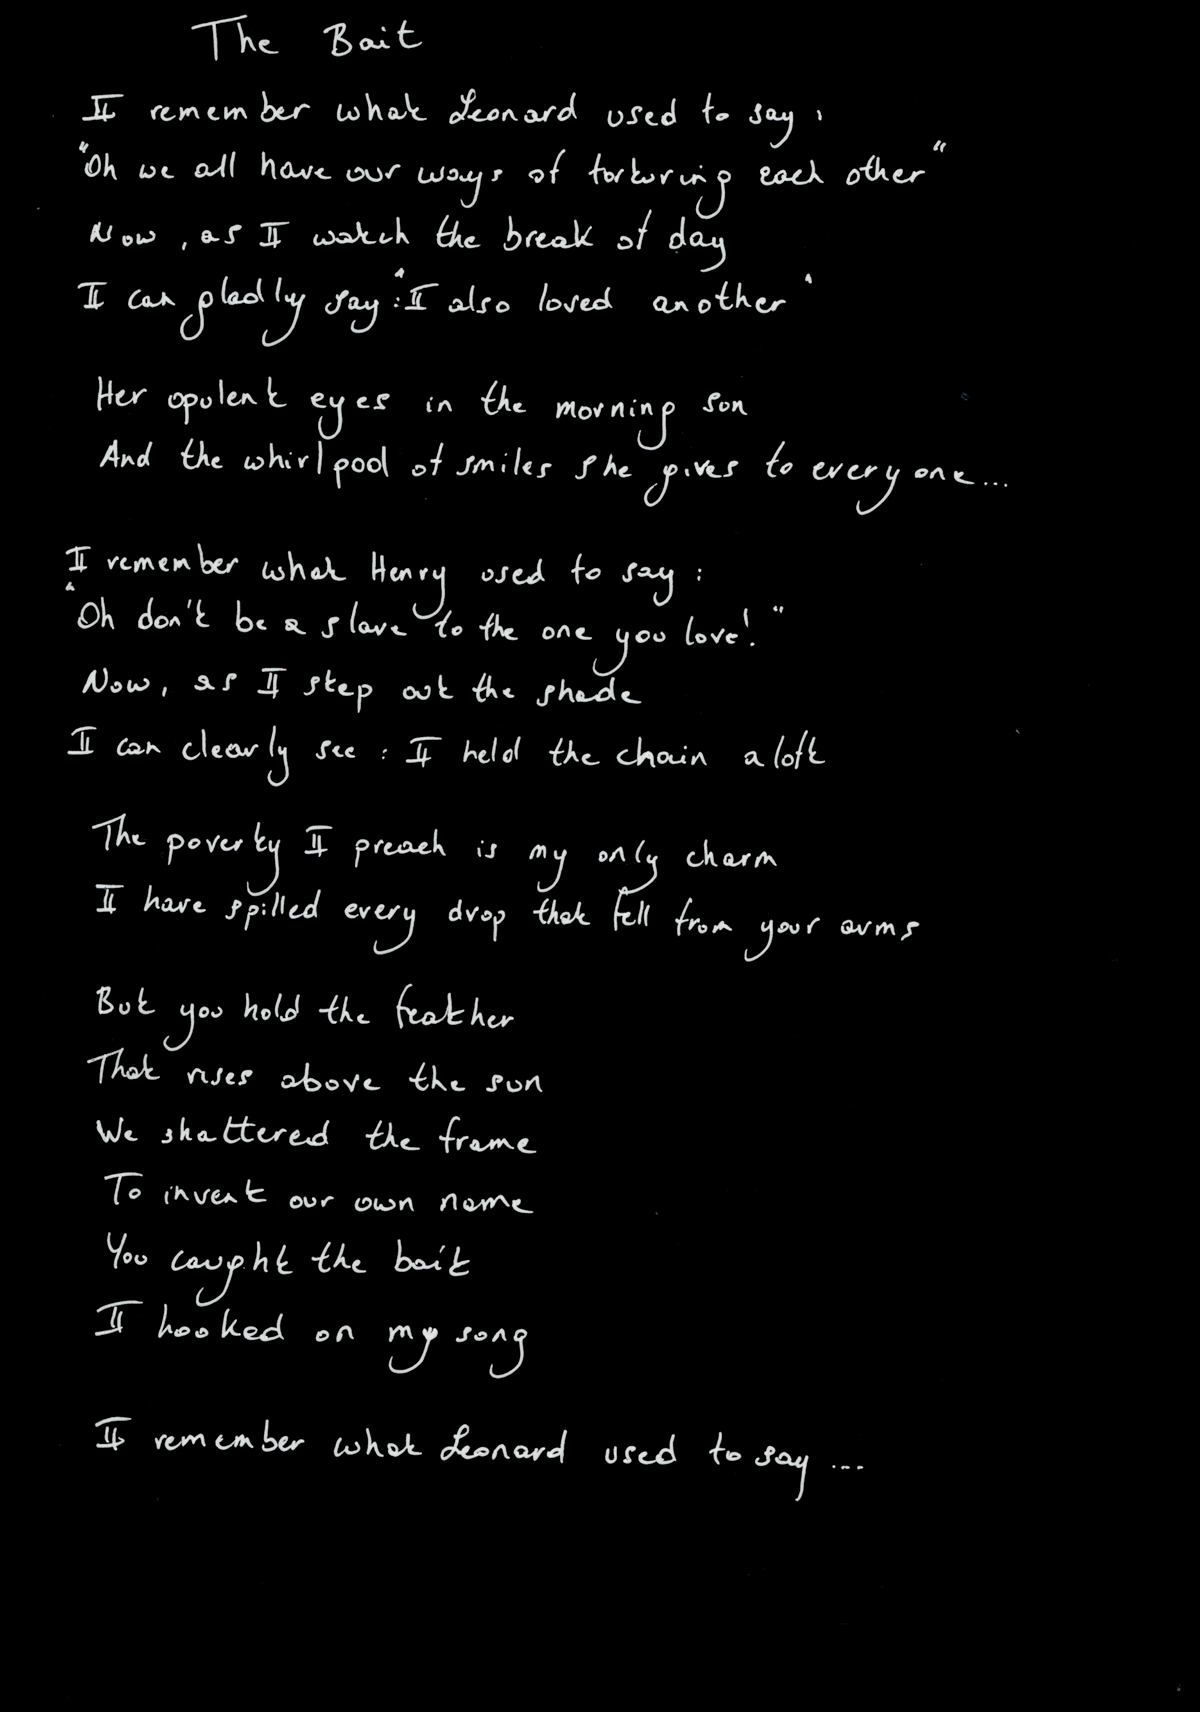 The Bait
I remember what Leonard used to say:
"Oh we all have our ways of torturing each other"
Now, as I watch the break of day
I can gladly say: "I also loved another"
Her opulent eyes in the morning son
And the whirlpool of smiles she gives to everyone...
I remember what Henry used to say:
"Oh don't be a slave to the one you love!"
Now, as I step out the shade
I can clearly see: I held the chain aloft
The poverty I preach is my only charm
I have spilled every drop that fell from your arms
But you hold the feather
That rises above the sun
We shattered the frame
To invent our own name
You caught the bait
I hooked on my song
I remember what Leonard used to say...